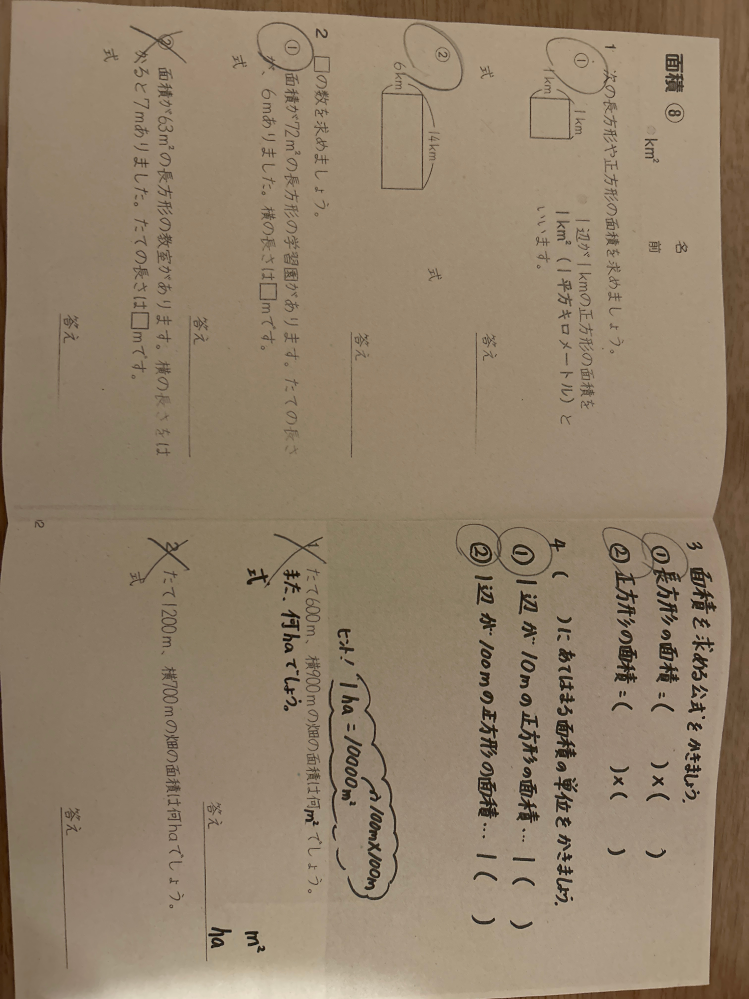 面積 ⑧
km²
名前
1 次の長方形や正方形の面積を求めましょう。
①
1km
1km
1辺が1kmの正方形の面積を
1km²(1平方キロメートル)と
いいます。
式
答え
②
14km
6km
式
答え
2 □の数を求めましょう。
① 面積が72m²の長方形の学習園があります。たての長さ
が、6mありました。横の長さは□mです。
式
答え
② 面積が63m²の長方形の教室があります。横の長さをは
かると7mありました。たての長さは□mです。
式
答え
12
3 面積を求める公式をかきましょう。
①長方形の面積=( )×( )
②正方形の面積=( )×( )
4 ( )にあてはまる面積の単位をかきましょう。
① 1辺が10mの正方形の面積… 1( )
② 1辺が100mの正方形の面積… 1( )
100m×100m
ヒント! 1ha=10000m²
1 たて600m、横900mの畑の面積は何m²でしょう。
また、何haでしょう。
式
m²
答え ha
2 たて1200m、横700mの畑の面積は何haでしょう。
式
答え